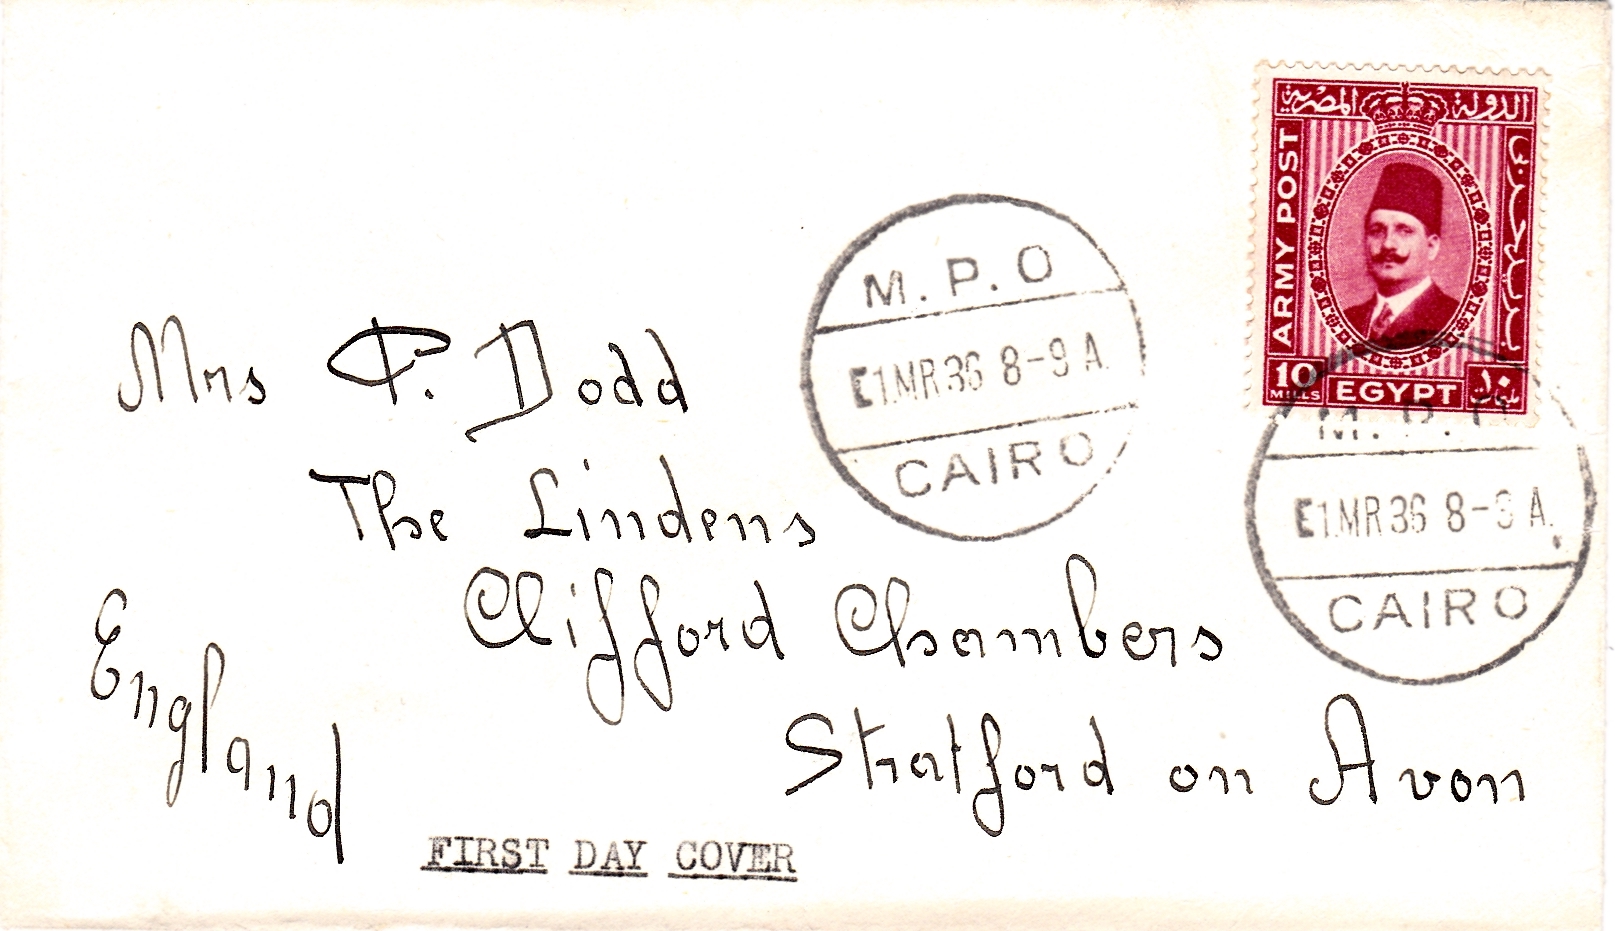 الدولة المصرية
ARMY POST
بريد الجيش
10
MILLS
EGYPT
١٠
M.P.O
E1.MR36 8-9 A.
CAIRO
M.P.O
E1.MR36 8-9 A.
CAIRO
Mrs P. Dodd
The Lindens
Clifford Chambers
Stratford on Avon
England
FIRST DAY COVER